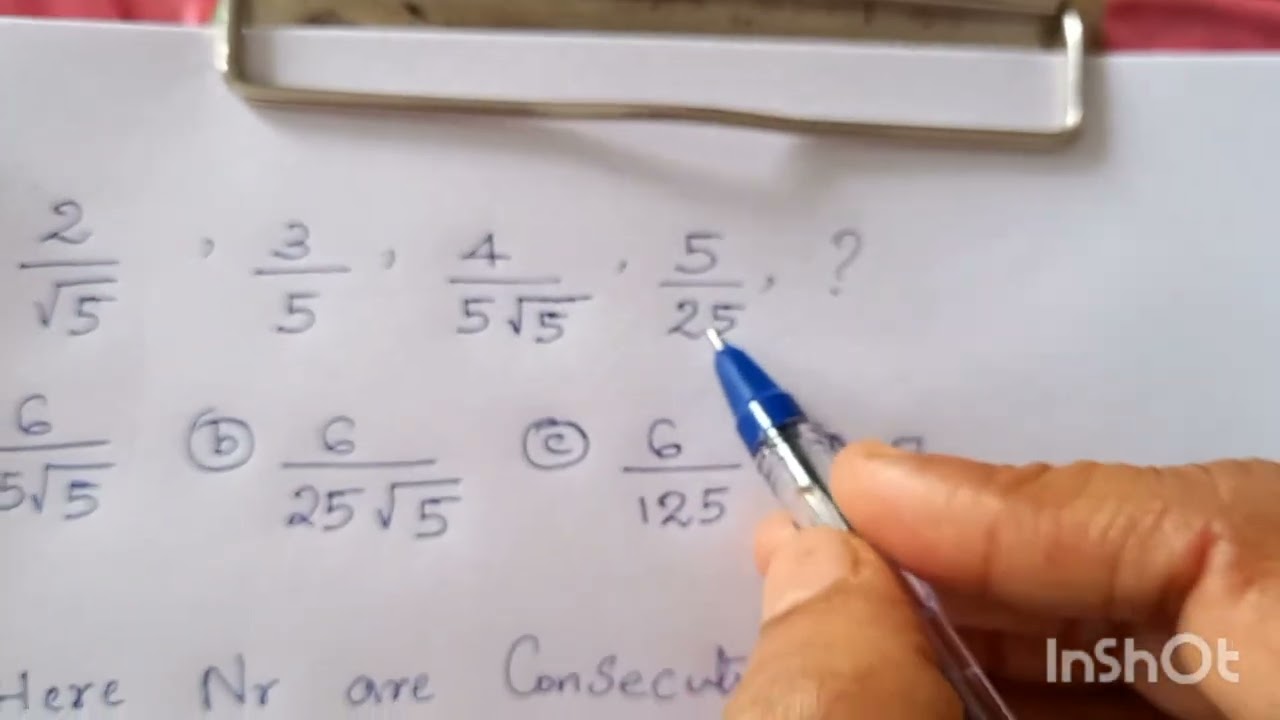 2/√5 , 3/5 , 4/5√5 , 5/25 , ?
6/5√5 (b) 6/25√5 (c) 6/125
Here Nr are
InShOt